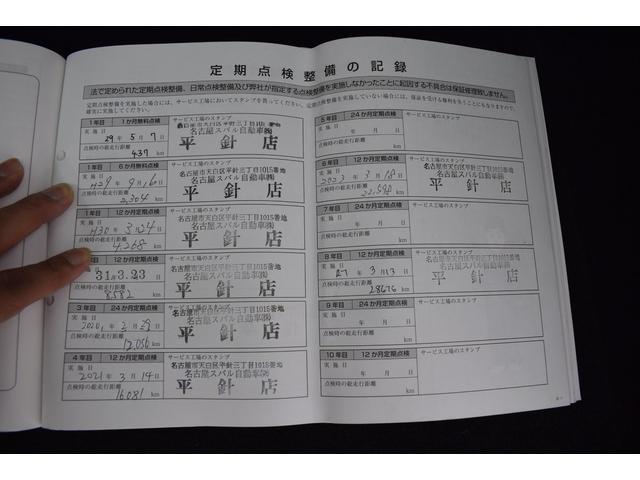 定期点検整備の記録
法で定められた定期点検整備、日常点検整備及び弊社が指定する点検整備を実施しなかったことに起因する不具合は保証修理致しません。
定期点検整備を実施した場合には、サービス工場においてスタンプを貰ってください。
確実に実施してください。
1年目 1か月無料点検
サービス工場のスタンプ
実施日
29年5月7日
名古屋市天白区平針三丁目1015番地
名古屋スバル自動車㈱
平針店
点検時の総走行距離
437 km
1年目 6か月無料点検
サービス工場のスタンプ
実施日
H29年9月16日
名古屋市天白区平針三丁目1015番地
名古屋スバル自動車㈱
平針店
点検時の総走行距離
2,304 km
1年目 12か月定期点検
サービス工場のスタンプ
実施日
H30年3月24日
名古屋市天白区平針三丁目1015番地
名古屋スバル自動車㈱
平針店
点検時の総走行距離
4,268 km
12か月定期点検
サービス工場のスタンプ
31年3.23日
名古屋市天白区平針三丁目1015番地
名古屋スバル自動車㈱
平針店
総走行距離
8,582 km
3年目 24か月定期点検
サービス工場のスタンプ
実施日
名古屋市天白区平針三丁目1015番地
名古屋スバル自動車㈱
平針店
点検時の総走行距離
12,056 km
4年目 12か月定期点検
サービス工場のスタンプ
実施日
2021年3月14日
名古屋市天白区平針三丁目1015番地
名古屋スバル自動車㈱
平針店
点検時の総走行距離
16081 km
5年目 24か月定期点検
サービス工場のスタンプ
実施日
年 月 日
点検時の総走行距離
km
6年目 12か月定期点検
サービス工場のスタンプ
実施日
名古屋市天白区平針三丁目1015番地
名古屋スバル自動車㈱
平針店
点検時の総走行距離
km
7年目 24か月定期点検
サービス工場のスタンプ
実施日
年 月 日
点検時の総走行距離
km
8年目 12か月定期点検
サービス工場のスタンプ
実施日
名古屋市天白区平針三丁目1015番地
名古屋スバル自動車㈱
平針店
点検時の総走行距離
28676 km
9年目 24か月定期点検
サービス工場のスタンプ
実施日
年 月 日
点検時の総走行距離
km
10年目 12か月定期点検
サービス工場のスタンプ
実施日
年 月 日
点検時の総走行距離
km